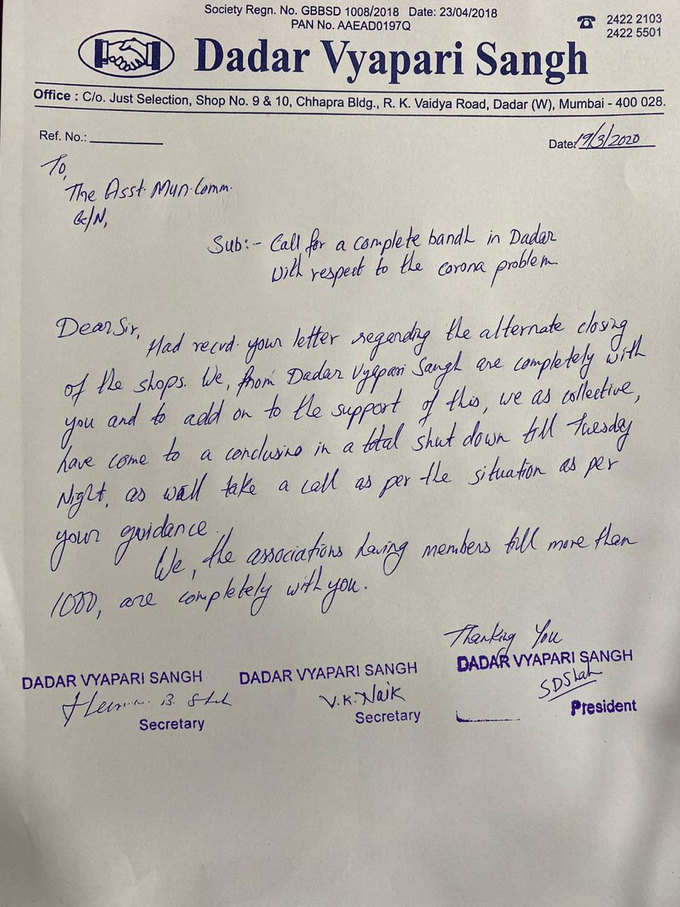 Society Regn. No. GBBSD 1008/2018 Date: 23/04/2018
PAN No. AAEAD0197Q
2422 2103
2422 5501
Dadar Vyapari Sangh
Office : C/o. Just Selection, Shop No. 9 & 10, Chhapra Bldg., R. K. Vaidya Road, Dadar (W), Mumbai - 400 028.
Ref. No.:
Date: 19/3/2020
To,
The Asst. Mun. Comm.
G/N,
Sub:- Call for a complete bandh in Dadar
with respect to the corona problem
Dear Sir,
Had recvd. your letter regarding the alternate closing
of the shops. We, from Dadar Vyapari Sangh are completely with
you and to add on to the support of this, we as collective,
have come to a conclusion in a total shut down till Tuesday
Night, as will take a call as per the situation as per
your guidance.
We, the associations having members till more than
1000, are completely with you.
Thanking You
DADAR VYAPARI SANGH DADAR VYAPARI SANGH DADAR VYAPARI SANGH
B. Shah V.K. Naik SDShah
Secretary Secretary President